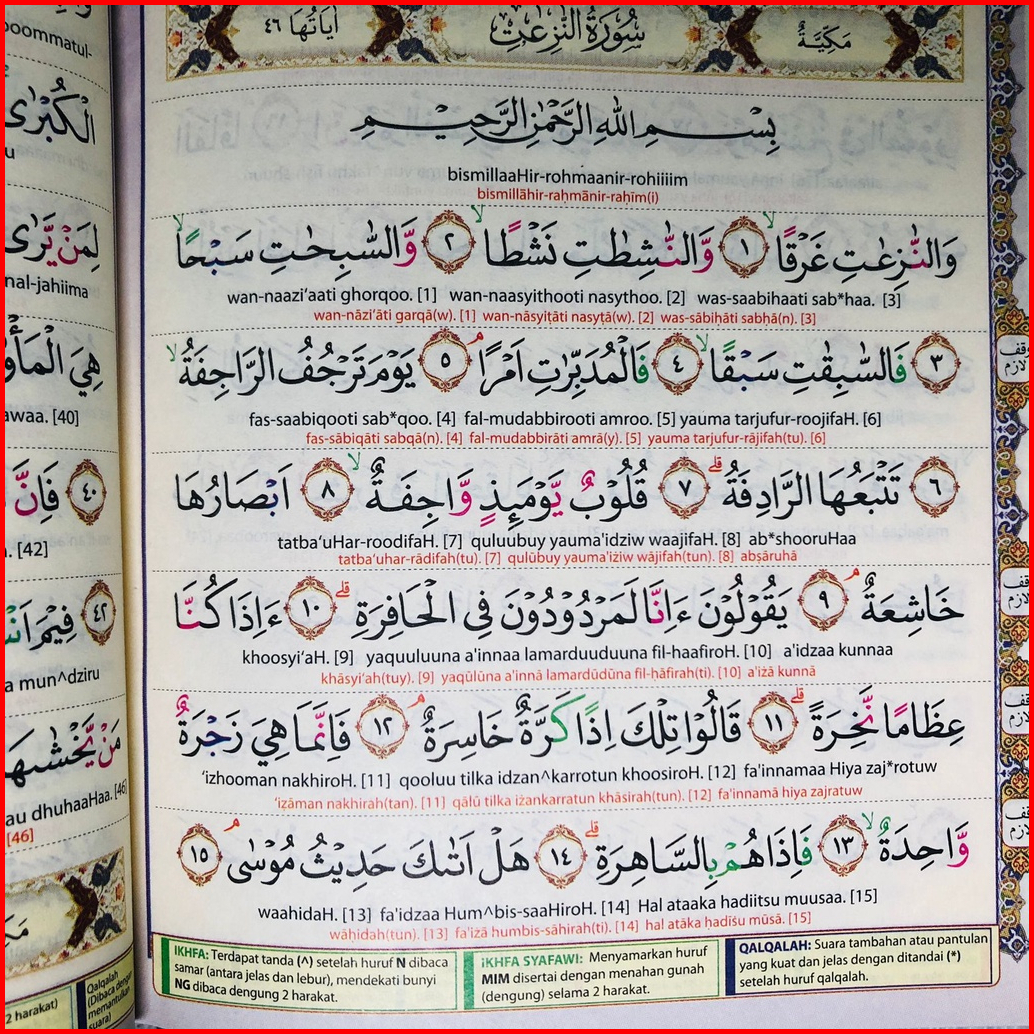 سُورَةُ النّٰزِعٰتِ
مَكِّيَّةٌ
اٰيَاتُهَا ٤٦
بِسْمِ اللّٰهِ الرَّحْمٰنِ الرَّحِيْمِ
bismillaaHir-rohmaanir-rohiiiim
bismillāhir-raḥmānir-raḥīm(i)
وَالنّٰزِعٰتِ غَرْقًا ۙ ١ وَّالنّٰشِطٰتِ نَشْطًا ۙ ٢ وَّالسّٰبِحٰتِ سَبْحًا ۙ
wan-naazi‘aati ghorqoo. [1] wan-naasyithooti nasythoo. [2] was-saabihaati sab*haa. [3]
wan-nāzi‘āti garqā(w). [1] wan-nāsyiṭāti nasyṭā(w). [2] was-sābiḥāti sabḥā(n). [3]
٣ فَالسّٰبِقٰتِ سَبْقًا ۙ ٤ فَالْمُدَبِّرٰتِ اَمْرًا ۘ ٥ يَوْمَ تَرْجُفُ الرَّاجِفَةُ ۙ
fas-saabiqooti sab*qoo. [4] fal-mudabbirooti amroo. [5] yauma tarjufur-roojifaH. [6]
fas-sābiqāti sabqā(n). [4] fal-mudabbirāti amrā(y). [5] yauma tarjufur-rājifah(tu). [6]
٦ تَتْبَعُهَا الرَّادِفَةُ ۗ ٧ قُلُوْبٌ يَّوْمَىِٕذٍ وَّاجِفَةٌ ۙ ٨ اَبْصَارُهَا
tatba‘uHar-roodifaH. [7] quluubuy yauma'idziw waajifaH. [8] ab*shooruHaa
tatba‘uhar-rādifah(tu). [7] qulūbuy yauma'iżiw wājifah(tun). [8] abṣāruhā
خَاشِعَةٌ ۘ ٩ يَقُوْلُوْنَ ءَاِنَّا لَمَرْدُوْدُوْنَ فِى الْحَافِرَةِ ۗ ١٠ ءَاِذَا كُنَّا
khoosyi‘aH. [9] yaquuluuna a'innaa lamarduuduuna fil-haafiroH. [10] a'idzaa kunnaa
khāsyi‘ah(tuy). [9] yaqūlūna a'innā lamardūdūna fil-ḥāfirah(ti). [10] a'iżā kunnā
عِظَامًا نَّخِرَةً ۗ ١١ قَالُوْا تِلْكَ اِذًا كَرَّةٌ خَاسِرَةٌ ۘ ١٢ فَاِنَّمَا هِيَ زَجْرَةٌ
‘izhooman nakhiroH. [11] qooluu tilka idzan^karrotun khoosiroH. [12] fa'innamaa Hiya zaj*rotuw
‘iẓāman nakhirah(tan). [11] qālū tilka iżankarratun khāsirah(tun). [12] fa'innamā hiya zajratuw
وَّاحِدَةٌ ۙ ١٣ فَاِذَا هُمْ بِالسَّاهِرَةِ ۗ ١٤ هَلْ اَتٰىكَ حَدِيْثُ مُوْسٰى ۘ ١٥
waahidaH. [13] fa'idzaa Hum^bis-saaHiroH. [14] Hal ataaka hadiitsu muusaa. [15]
wāḥidah(tun). [13] fa'iżā humbis-sāhirah(ti). [14] hal atāka ḥadīṡu mūsā. [15]
IKHFA: Terdapat tanda (^) setelah huruf N dibaca
samar (antara jelas dan lebur), mendekati bunyi
NG dibaca dengung 2 harakat.
iKHFA SYAFAWI: Menyamarkan huruf
MIM disertai dengan menahan gunah
(dengung) selama 2 harakat.
QALQALAH: Suara tambahan atau pantulan
yang kuat dan jelas dengan ditandai (*)
setelah huruf qalqalah.
oommatul-
الْكُبْرٰى
لِمَنْ يَّرٰى
nal-jahiima
هِيَ الْمَأْو
awaa. [40]
٤٠ فَاِنَّ
. [42]
٤٢ فِيْمَ اَنْ
a mun^dziru
مَنْ يَّخْشٰىهَا
au dhuhaaHaa. [46]
[46]
2 harakat)
Qalqalah
(Dibaca dengan
memantulkan
suara)